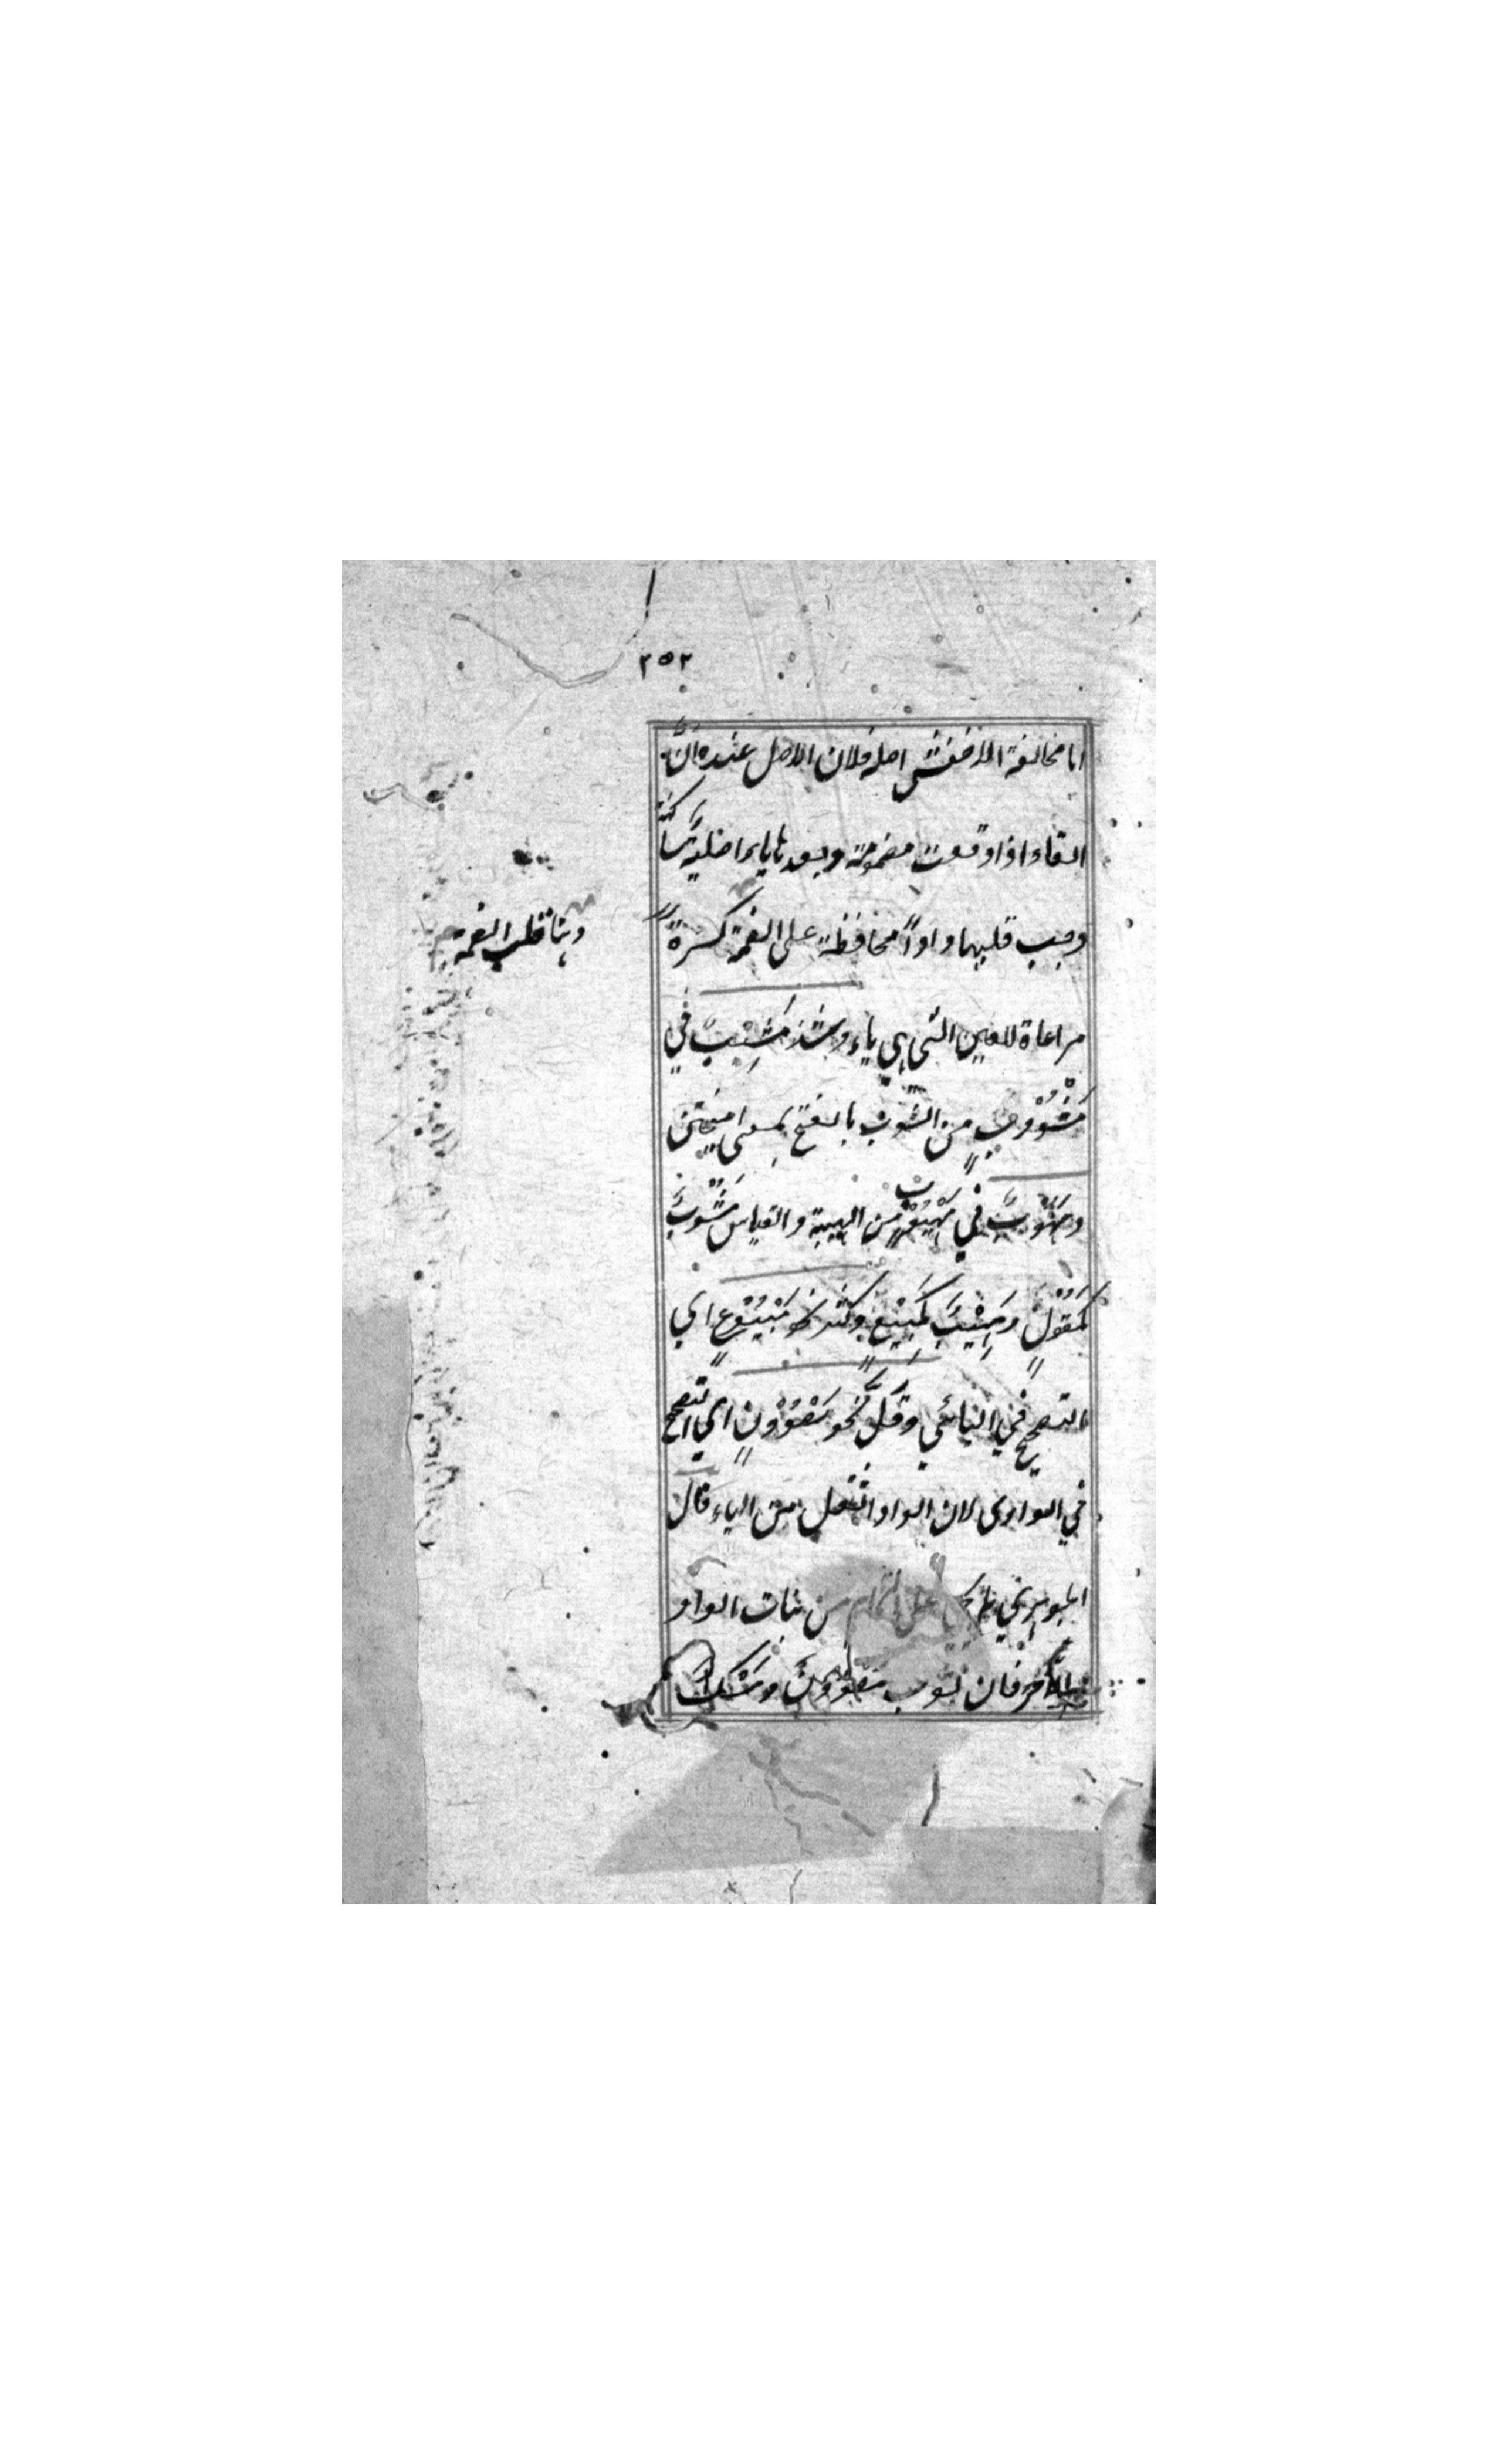 ٢٥٢
اما مخالفة الاخفش اصله فلان الاصل عنده انّ
الفاء اذا وقعت مضمومة وبعدها ياء اصلية ساكنة
وجب قلبها واواً محافظة على الضمة كسرةً
وهنا قلب الضمة
مراعاة للعين التى هي ياء وشذ مَشِيْبٌ في
مَشْوُوْبٍ من الشوب بالفتح بمعنى اميختن
ومَهُوْبٌ في مَهْيُوْبٍ من الهيبة والقياس مَشُوْبٌ
كَمَقُوْلٍ ومَهِيْبٌ كَمَبِيْعٍ وكثر نحو مَبْيُوْعٍ اي
التصحيح في اليائي وقَلَّ نحو مَصْوُوْنٍ اي التصحيح
في الواوى لان الواو اثقل من الياء قال
الجوهري لم على التمام من بنات الواو
فان ثوب مَصْوُوْنٌ ومسك